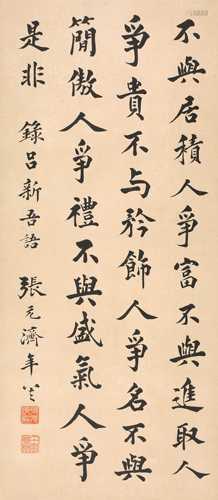 不與居積人爭富不與進取人
爭貴不与矜飾人爭名不與
簡傲人爭禮不與盛氣人爭
是非 錄呂新吾語 張元濟年